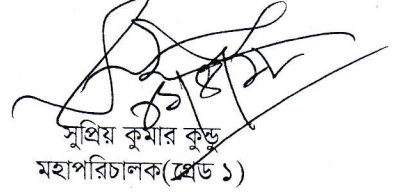 সুপ্রিয় কুমার কুন্ডু
মহাপরিচালক(গ্রেড ১)